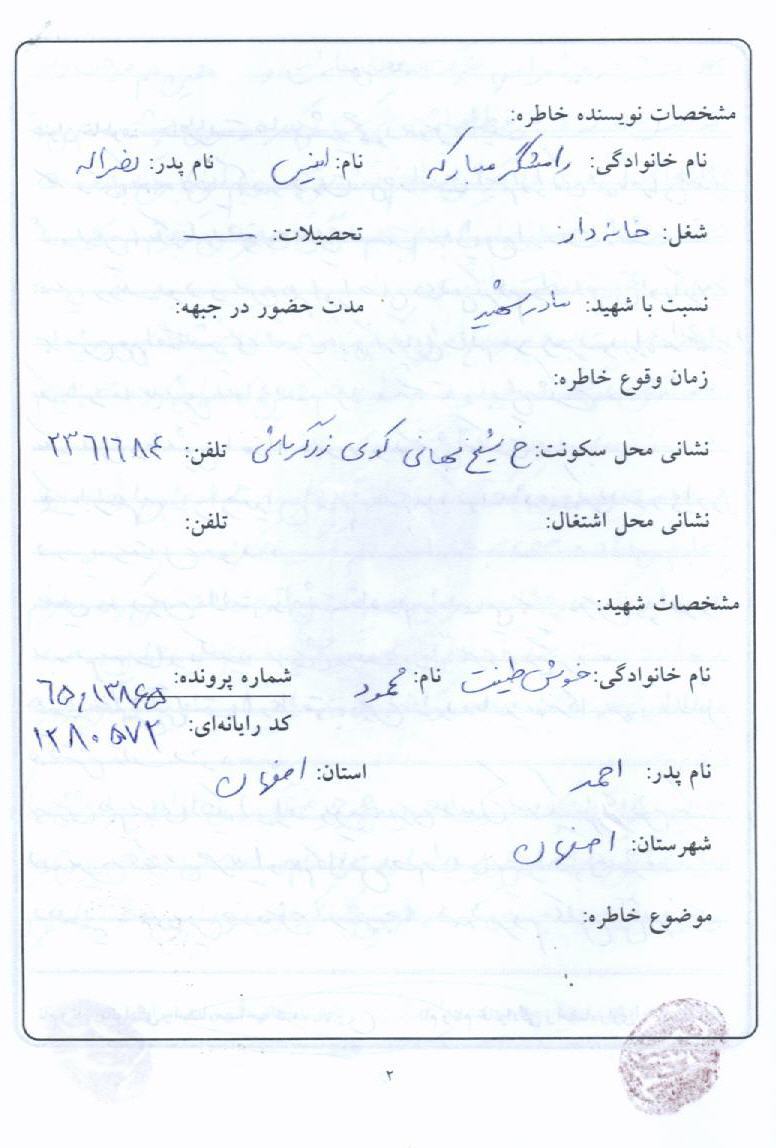 مشخصات نویسنده خاطره:
نام خانوادگی: رامشگر مبارکه نام: انیس نام پدر: نصراله
شغل: خانه دار تحصیلات: ــــــ
نسبت با شهید: مادر شهید مدت حضور در جبهه:
زمان وقوع خاطره:
نشانی محل سکونت: خ شیخ بهائی کوی زرگرباشی تلفن: ۲۳۶۱۶۸۴
نشانی محل اشتغال: تلفن:
مشخصات شهید:
نام خانوادگی: خوش طینت نام: محمود شماره پرونده:
کد رایانه‌ای: ۱۲۸۰۵۷۲
نام پدر: احمد استان: اصفهان
شهرستان: اصفهان
موضوع خاطره:
۲